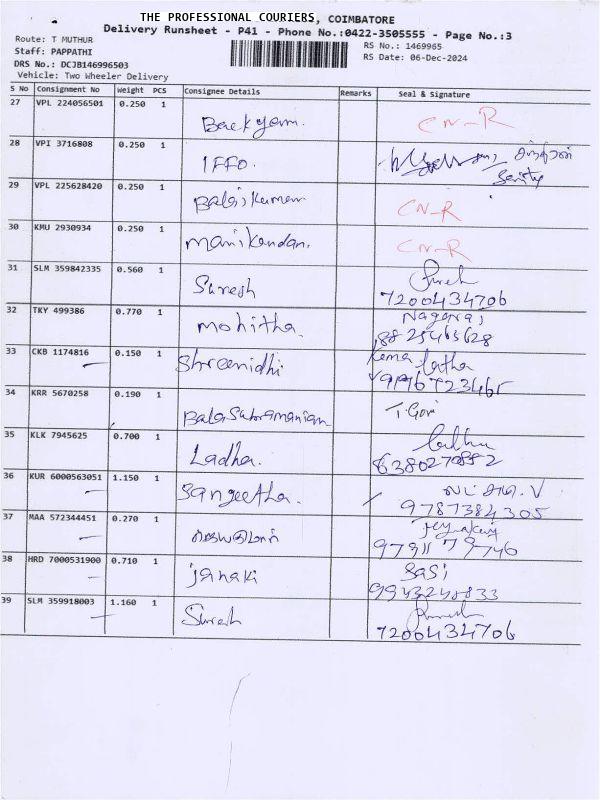 THE PROFESSIONAL COURIERS, COIMBATORE
Delivery Runsheet - P41 - Phone No.:0422-3505555 - Page No.:3
Route: T MUTHUR
RS No.: 1469965
Staff: PAPPATHI
RS Date: 06-Dec-2024
DRS No.: DCJB146996503
Vehicle: Two Wheeler Delivery
S No Consignment No Weight PCS Consignee Details Remarks Seal & Signature
27 VPL 224056501 0.250 1
CN-R
28 VPI 3716808 0.250 1
IFFO.
29 VPL 225628420 0.250 1
Balajikumar CN-R
30 KMU 2930934 0.250 1
manikandan. CN-R
31 SLM 359842335 0.560 1
Suresh
7200434706
32 TKY 499386 0.770 1 Nagaraj
mohitha 8825465628
33 CKB 1174816 0.150 1
Shreenidhi
34 KRR 5670258 0.190 1 T.Gowri
Balasubramaniam
35 KLK 7945625 0.700 1
Ladha.
36 KUR 6000563051 1.150 1
Sangeetha. 9787384305
37 MAA 572344451 0.270 1
ஜெயகுமார்
38 HRD 7000531900 0.710 1 Sasi
Janaki 9943248833
39 SLM 359918003 1.160 1
Suresh 7200434706